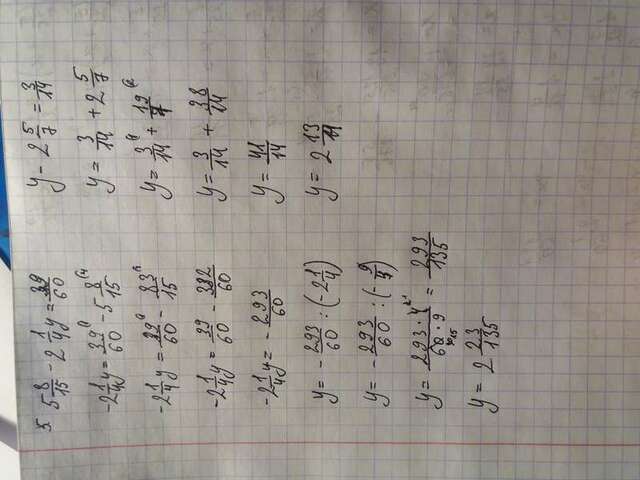 5 8/15 - 2 1/4 y = 39/60
-2 1/4 y = 39/60 - 5 8/15
-2 1/4 y = 39/60 - 83/15
-2 1/4 y = 39/60 - 332/60
-2 1/4 y = - 293/60
y = - 293/60 : (-2 1/4)
y = - 293/60 : (- 9/4)
y = 293 · 4/60 · 9 = 293/135
y = 2 23/135
y - 2 5/7 = 3/14
y = 3/14 + 2 5/7
y = 3/14 + 19/7
y = 3/14 + 38/14
y = 41/14
y = 2 13/14